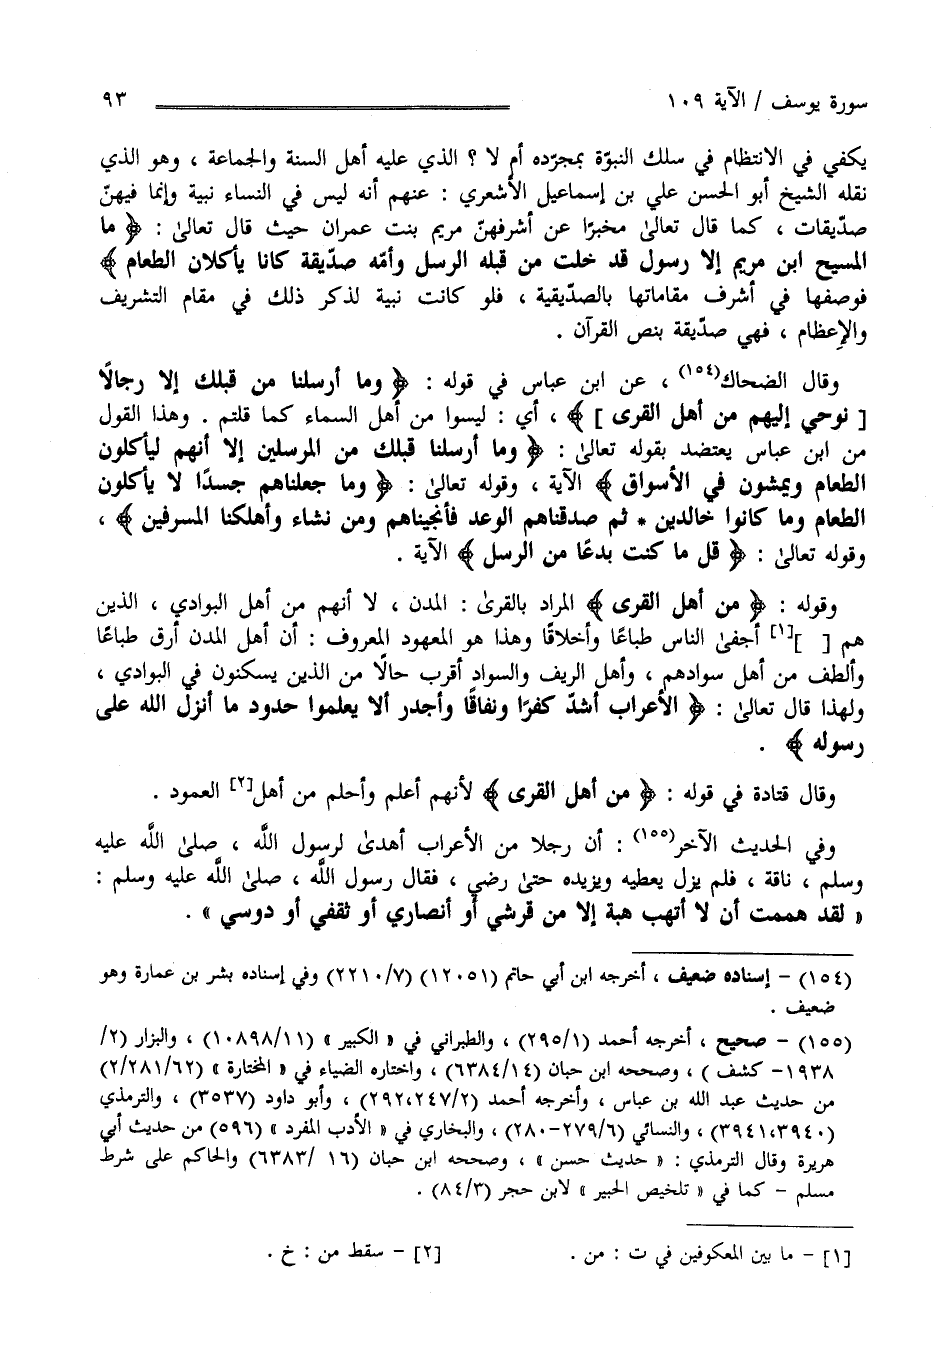 سورة يوسف / الآية ١٠٩ ٩٣
يكفي في الانتظام في سلك النبوّة بمجرّده أم لا ؟ الذي عليه أهل السنة والجماعة ، وهو الذي
نقله الشيخ أبو الحسن علي بن إسماعيل الأشعري : عنهم أنه ليس في النساء نبية وإنما فيهنّ
صدّيقات ، كما قال تعالىٰ مخبرًا عن أشرفهنّ مريم بنت عمران حيث قال تعالىٰ : ﴿ ما
المسيح ابن مريم إلا رسول قد خلت من قبله الرسل وأمّه صدّيقة كانا يأكلان الطعام ﴾
فوصفها في أشرف مقاماتها بالصدّيقية ، فلو كانت نبية لذكر ذلك في مقام التشريف
والإعظام ، فهي صدّيقة بنص القرآن .
وقال الضحاك(١٥٤) ، عن ابن عباس في قوله : ﴿ وما أرسلنا من قبلك إلا رجالًا
[ نوحي إليهم من أهل القرى ] ﴾ ، أي : ليسوا من أهل السماء كما قلتم . وهذا القول
من ابن عباس يعتضد بقوله تعالىٰ : ﴿ وما أرسلنا قبلك من المرسلين إلا أنهم ليأكلون
الطعام ويمشون في الأسواق ﴾ الآية ، وقوله تعالىٰ : ﴿ وما جعلناهم جسدًا لا يأكلون
الطعام وما كانوا خالدين * ثم صدقناهم الوعد فأنجيناهم ومن نشاء وأهلكنا المسرفين ﴾ ،
وقوله تعالىٰ : ﴿ قل ما كنت بدعًا من الرسل ﴾ الآية .
وقوله : ﴿ من أهل القرى ﴾ المراد بالقرىٰ : المدن ، لا أنهم من أهل البوادي ، الذين
هم [ ][١] أجفىٰ الناس طباعًا وأخلاقًا وهذا هو المعهود المعروف : أن أهل المدن أرق طباعًا
وألطف من أهل سوادهم ، وأهل الريف والسواد أقرب حالًا من الذين يسكنون في البوادي ،
ولهذا قال تعالىٰ : ﴿ الأعراب أشدّ كفرًا ونفاقًا وأجدر ألا يعلموا حدود ما أنزل الله على
رسوله ﴾ .
وقال قتادة في قوله : ﴿ من أهل القرى ﴾ لأنهم أعلم وأحلم من أهل[٢] العمود .
وفي الحديث الآخر(١٥٥) : أن رجلا من الأعراب أهدىٰ لرسول اللَّه ، صلىٰ اللَّه عليه
وسلم ، ناقة ، فلم يزل يعطيه ويزيده حتىٰ رضي ، فقال رسول اللَّه ، صلىٰ اللَّه عليه وسلم :
« لقد هممت أن لا أتهب هبة إلا من قرشي أو أنصاري أو ثقفي أو دوسي » .
(١٥٤) – إسناده ضعيف ، أخرجه ابن أبي حاتم (١٢٠٥١) (٢٢١٠/٧) وفي إسناده بشر بن عمارة وهو
ضعيف .
(١٥٥) – صحيح ، أخرجه أحمد (٢٩٥/١) ، والطبراني في « الكبير » (١٠٨٩٨/١١) ، والبزار (٢/
١٩٣٨– كشف ) ، وصححه ابن حبان (٦٣٨٤/١٤) ، واختاره الضياء في « المختارة » (٢/٢٨١/٦٢)
من حديث عبد الله بن عباس ، وأخرجه أحمد (٢٩٢،٢٤٧/٢) ، وأبو داود (٣٥٣٧) ، والترمذي
(٣٩٤١،٣٩٤٠) ، والنسائي (٢٧٩/٦–٢٨٠) ، والبخاري في « الأدب المفرد » (٥٩٦) من حديث أبي
هريرة وقال الترمذي : « حديث حسن » ، وصححه ابن حبان (١٦ /٦٣٨٣) والحاكم على شرط
مسلم – كما في « تلخيص الحبير » لابن حجر (٨٤/٣) .
[١] – ما بين المعكوفين في ت : من . [٢] – سقط من : خ .